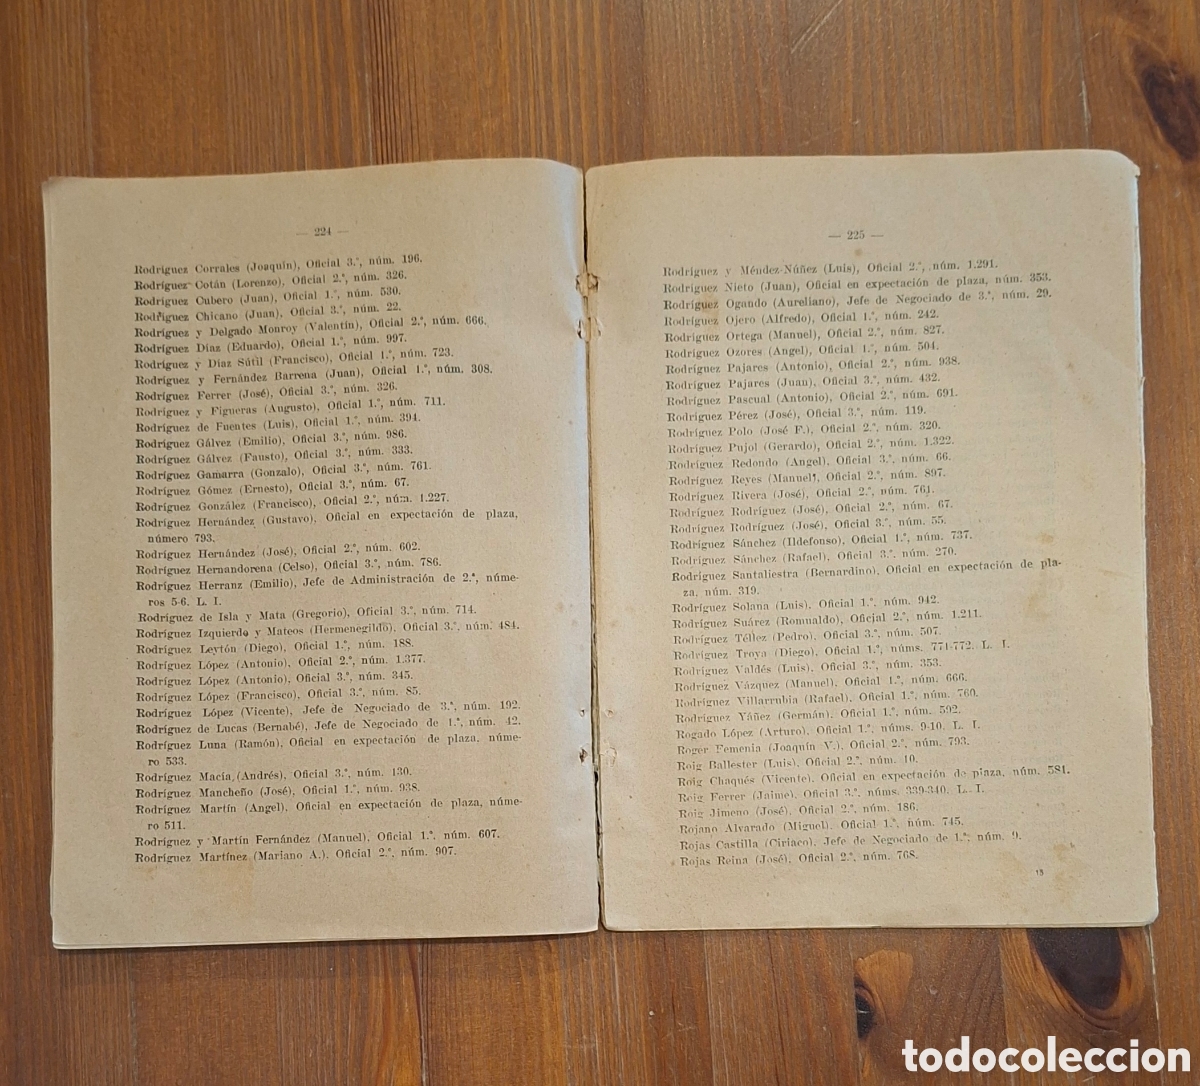 — 224 —
Rodríguez Corrales (Joaquín), Oficial 3.º, núm. 196.
Rodríguez Cotán (Lorenzo), Oficial 2.º, núm. 326.
Rodríguez Cubero (Juan), Oficial 1.º, núm. 530.
Rodríguez Chicano (Juan), Oficial 3.º, núm. 22.
Rodríguez y Delgado Monroy (Valentín), Oficial 2.º, núm. 666.
Rodríguez Díaz (Eduardo), Oficial 1.º, núm. 997.
Rodríguez y Díaz Sútil (Francisco), Oficial 1.º, núm. 723.
Rodríguez y Fernández Barrena (Juan), Oficial 1.º, núm. 308.
Rodríguez Ferrer (José), Oficial 3.º, núm. 326.
Rodríguez y Figueras (Augusto), Oficial 1.º, núm. 711.
Rodríguez de Fuentes (Luis), Oficial 1.º, núm. 394.
Rodríguez Gálvez (Emilio), Oficial 3.º, núm. 986.
Rodríguez Gálvez (Fausto), Oficial 3.º, núm. 333.
Rodríguez Gamarra (Gonzalo), Oficial 3.º, núm. 761.
Rodríguez Gómez (Ernesto), Oficial 3.º, núm. 67.
Rodríguez González (Francisco), Oficial 2.º, núm. 1.227.
Rodríguez Hernández (Gustavo), Oficial en expectación de plaza,
número 793.
Rodríguez Hernández (José), Oficial 2.º, núm. 602.
Rodríguez Hernandorena (Celso), Oficial 3.º, núm. 786.
Rodríguez Herranz (Emilio), Jefe de Administración de 2.ª, núme-
ros 5-6. L. I.
Rodríguez de Isla y Mata (Gregorio), Oficial 3.º, núm. 714.
Rodríguez Izquierdo y Mateos (Hermenegildo), Oficial 3.º, núm. 484.
Rodríguez Leytón (Diego), Oficial 1.º, núm. 188.
Rodríguez López (Antonio), Oficial 2.º, núm. 1.377.
Rodríguez López (Antonio), Oficial 3.º, núm. 345.
Rodríguez López (Francisco), Oficial 3.º, núm. 85.
Rodríguez López (Vicente), Jefe de Negociado de 3.ª, núm. 192.
Rodríguez de Lucas (Bernabé), Jefe de Negociado de 1.ª, núm. 42.
Rodríguez Luna (Ramón), Oficial en expectación de plaza, núme-
ro 533.
Rodríguez Macía, (Andrés), Oficial 3.º, núm. 130.
Rodríguez Mancheño (José), Oficial 1.º, núm. 938.
Rodríguez Martín (Angel), Oficial en expectación de plaza, núme-
ro 511.
Rodríguez y Martín Fernández (Manuel), Oficial 1.º, núm. 607.
Rodríguez Martínez (Mariano A.), Oficial 2.º, núm. 907.
— 225 —
Rodríguez y Méndez-Núñez (Luis), Oficial 2.º, núm. 1.291.
Rodríguez Nieto (Juan), Oficial en expectación de plaza, núm. 353.
Rodríguez Ogando (Aureliano), Jefe de Negociado de 3.ª, núm. 29.
Rodríguez Ojero (Alfredo), Oficial 1.º, núm. 242.
Rodríguez Ortega (Manuel), Oficial 2.º, núm. 827.
Rodríguez Ozores (Angel), Oficial 1.º, núm. 504.
Rodríguez Pajares (Antonio), Oficial 2.º, núm. 938.
Rodríguez Pajares (Juan), Oficial 3.º, núm. 432.
Rodríguez Pascual (Antonio), Oficial 2.º, núm. 691.
Rodríguez Pérez (José), Oficial 3.º, núm. 119.
Rodríguez Polo (José F.), Oficial 2.º, núm. 320.
Rodríguez Pujol (Gerardo), Oficial 2.º, núm. 1.322.
Rodríguez Redondo (Angel), Oficial 3.º, núm. 66.
Rodríguez Reyes (Manuel), Oficial 2.º, núm. 897.
Rodríguez Rivera (José), Oficial 2.º, núm. 761.
Rodríguez Rodríguez (José), Oficial 2.º, núm. 67.
Rodríguez Rodríguez (José), Oficial 3.º, núm. 55.
Rodríguez Sánchez (Ildefonso), Oficial 1.º, núm. 737.
Rodríguez Sánchez (Rafael), Oficial 3.º, núm. 270.
Rodríguez Santaliestra (Bernardino), Oficial en expectación de pla-
za, núm. 319.
Rodríguez Solana (Luis), Oficial 1.º, núm. 942.
Rodríguez Suárez (Romualdo), Oficial 2.º, núm. 1.211.
Rodríguez Téllez (Pedro), Oficial 3.º, núm. 507.
Rodríguez Troya (Diego), Oficial 1.º, núms. 771-772. L. I.
Rodríguez Valdés (Luis), Oficial 3.º, núm. 353.
Rodríguez Vázquez (Manuel), Oficial 1.º, núm. 666.
Rodríguez Villarrubia (Rafael), Oficial 1.º, núm. 760.
Rodríguez Yáñez (Germán), Oficial 1.º, núm. 592.
Rogado López (Arturo), Oficial 1.º, núms. 9-10. L. I.
Roger Femenia (Joaquín V.), Oficial 2.º, núm. 793.
Roig Ballester (Luis), Oficial 2.º, núm. 10.
Roig Chaqués (Vicente), Oficial en expectación de plaza, núm. 581.
Roig Ferrer (Jaime), Oficial 3.º, núms. 339-340. L. I.
Roig Jimeno (José), Oficial 2.º, núm. 186.
Rojano Alvarado (Miguel), Oficial 1.º, núm. 745.
Rojas Castilla (Ciriaco), Jefe de Negociado de 1.ª, núm. 9.
Rojas Reina (José), Oficial 2.º, núm. 768.
15
todocoleccion